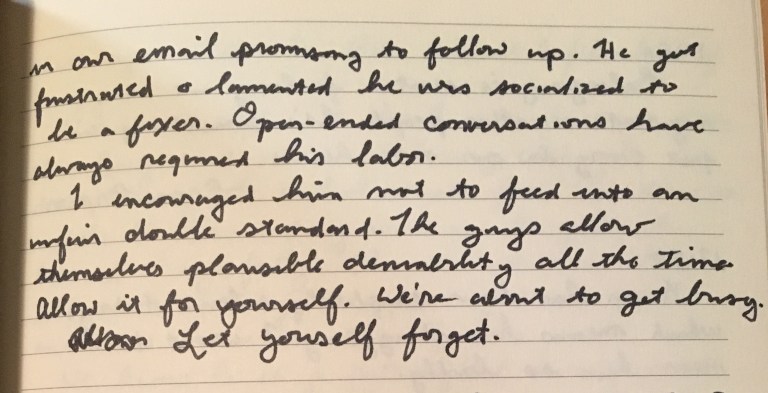 in our email promising to follow up. He got
frustrated & lamented he was socialized to
be a fixer. Open-ended conversations have
always required his labor.
I encouraged him not to feed into an
unfair double standard. The guys allow
themselves plausible deniability all the time
Allow it for yourself. We're about to get busy.
Let yourself forget.